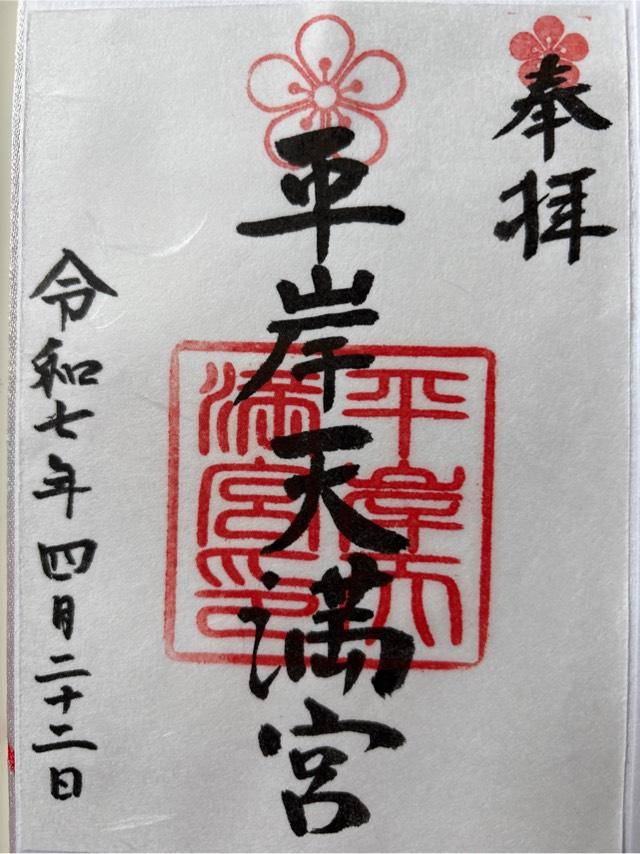 奉拝
平岸天満宮
平岸天
満宮印
令和七年四月二十二日